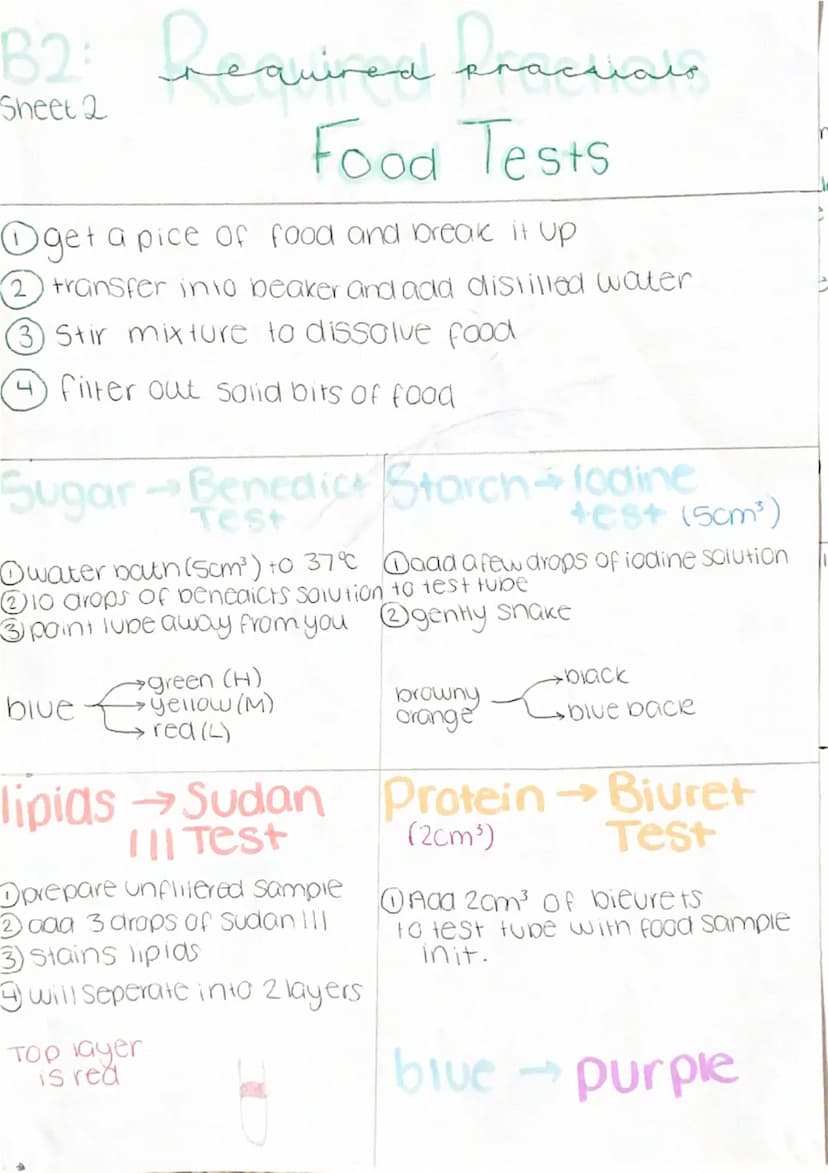 B2:
Required Practicals
required practicals
Sheet 2
Food Tests
① get a pice of food and break it up
② transfer into beaker and add distilled water
③ Stir mixture to dissolve food
④ filter out solid bits of food
Sugar → Benedict
Test
① water bath (5cm³) to 37°C
② 10 drops of benedicts solution
③ point tube away from you
blue
green (H)
yellow (M)
red (L)
Starch → Iodine
test (5cm³)
① add a few drops of iodine solution
to test tube
② gently shake
browny
orange
black
blue back
lipids → Sudan
III Test
① prepare unfiltered sample
② add 3 drops of sudan III
③ stains lipids
④ will seperate into 2 layers
Top layer
is red
Protein → Biuret
(2cm³) Test
① Add 2cm³ of bieurets
to test tube with food sample
in it.
blue → purple